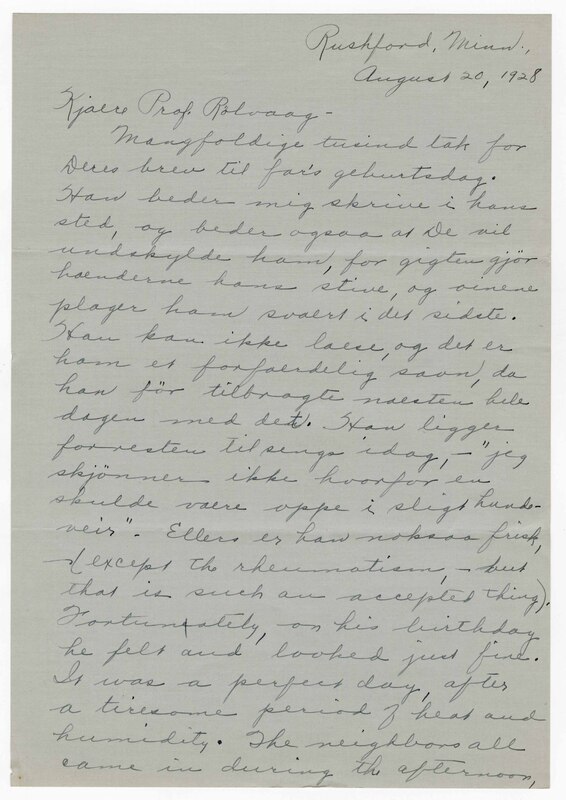 Rushford, Minn.,
August 20, 1928
Kjaere Prof. Rölvaag -
Mangfoldige tusind tak for
Deres brev til far's geburtsdag.
Han beder mig skrive i hans
sted, og beder ogsaa at De vil
undskylde ham, for gigten gjör
haenderne hans stive, og oinene
plager ham svaert i det sidste.
Han kan ikke laese, og det er
ham et forfaerdelig savn, da
han för tilbragte naesten hele
dagen med det. Han ligger
forresten tilsengs idag, - "jeg
skjönner ikke hvorfor en
skulde vaere oppe i sligt hunde-
veir". Ellers er han noksaa frisk,
-(except the rheumatism, - but
that is such an accepted thing).
Fortunately, on his birthday
he felt and looked just fine.
It was a perfect day, after
a tiresome period of heat and
humidity. The neighbors all
came in during the afternoon,